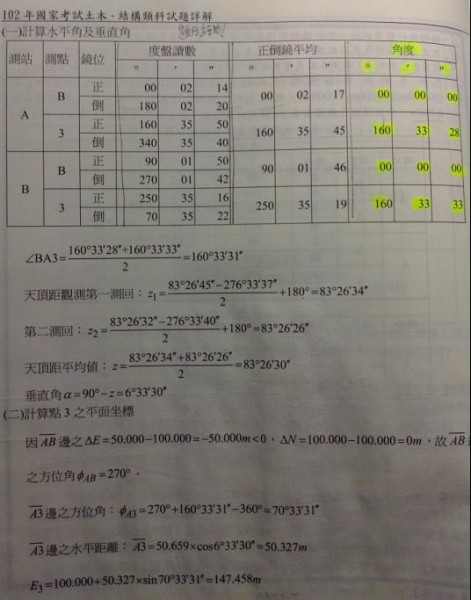 102 年國家考試土木、結構類科試題詳解
(一)計算水平角及垂直角
測站 測點 鏡位 度盤讀數 正倒鏡平均 角度
° ′ ″ ° ′ ″ ° ′ ″
A B 正 00 02 14 00 02 17 00 00 00
倒 180 02 20
3 正 160 35 50 160 35 45 160 33 28
倒 340 35 40
B B 正 90 01 50 90 01 46 00 00 00
倒 270 01 42
3 正 250 35 16 250 35 19 160 33 33
倒 70 35 22
∠BA3=160°33′28″+160°33′33″/2=160°33′31″
天頂距觀測第一測回：z₁=83°26′45″−276°33′37″/2+180°=83°26′34″
第二測回：z₂=83°26′32″−276°33′40″/2+180°=83°26′26″
天頂距平均值：z=83°26′34″+83°26′26″/2=83°26′30″
垂直角α=90°−z=6°33′30″
(二)計算點 3 之平面坐標
因AB邊之ΔE=50.000−100.000=−50.000m<0，ΔN=100.000−100.000=0m，故AB邊
之方位角φAB=270°。
A3邊之方位角：φA3=270°+160°33′31″−360°=70°33′31″
A3邊之水平距離：A3=50.659×cos6°33′30″=50.327m
E₃=100.000+50.327×sin70°33′31″=147.458m